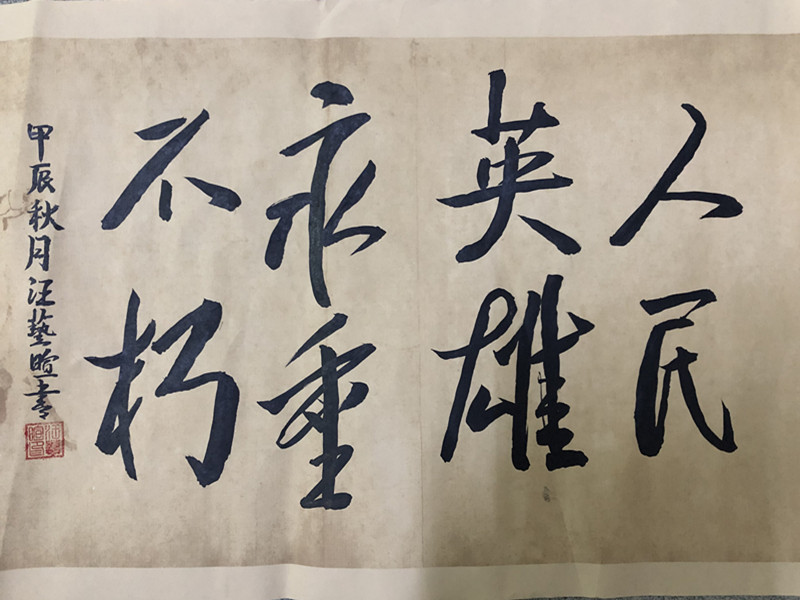 人民
英雄
永垂
不朽
甲辰秋月汪藝暄書